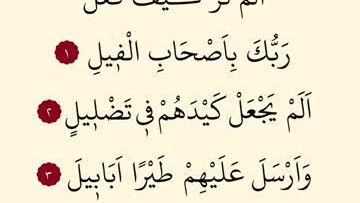 اَلَمْ تَرَ كَيْفَ فَعَلَ
رَبُّكَ بِاَصْحَابِ الْفٖيلِ ١
اَلَمْ يَجْعَلْ كَيْدَهُمْ فٖى تَضْلٖيلٍ ٢
وَاَرْسَلَ عَلَيْهِمْ طَيْرًا اَبَابٖيلَ ٣